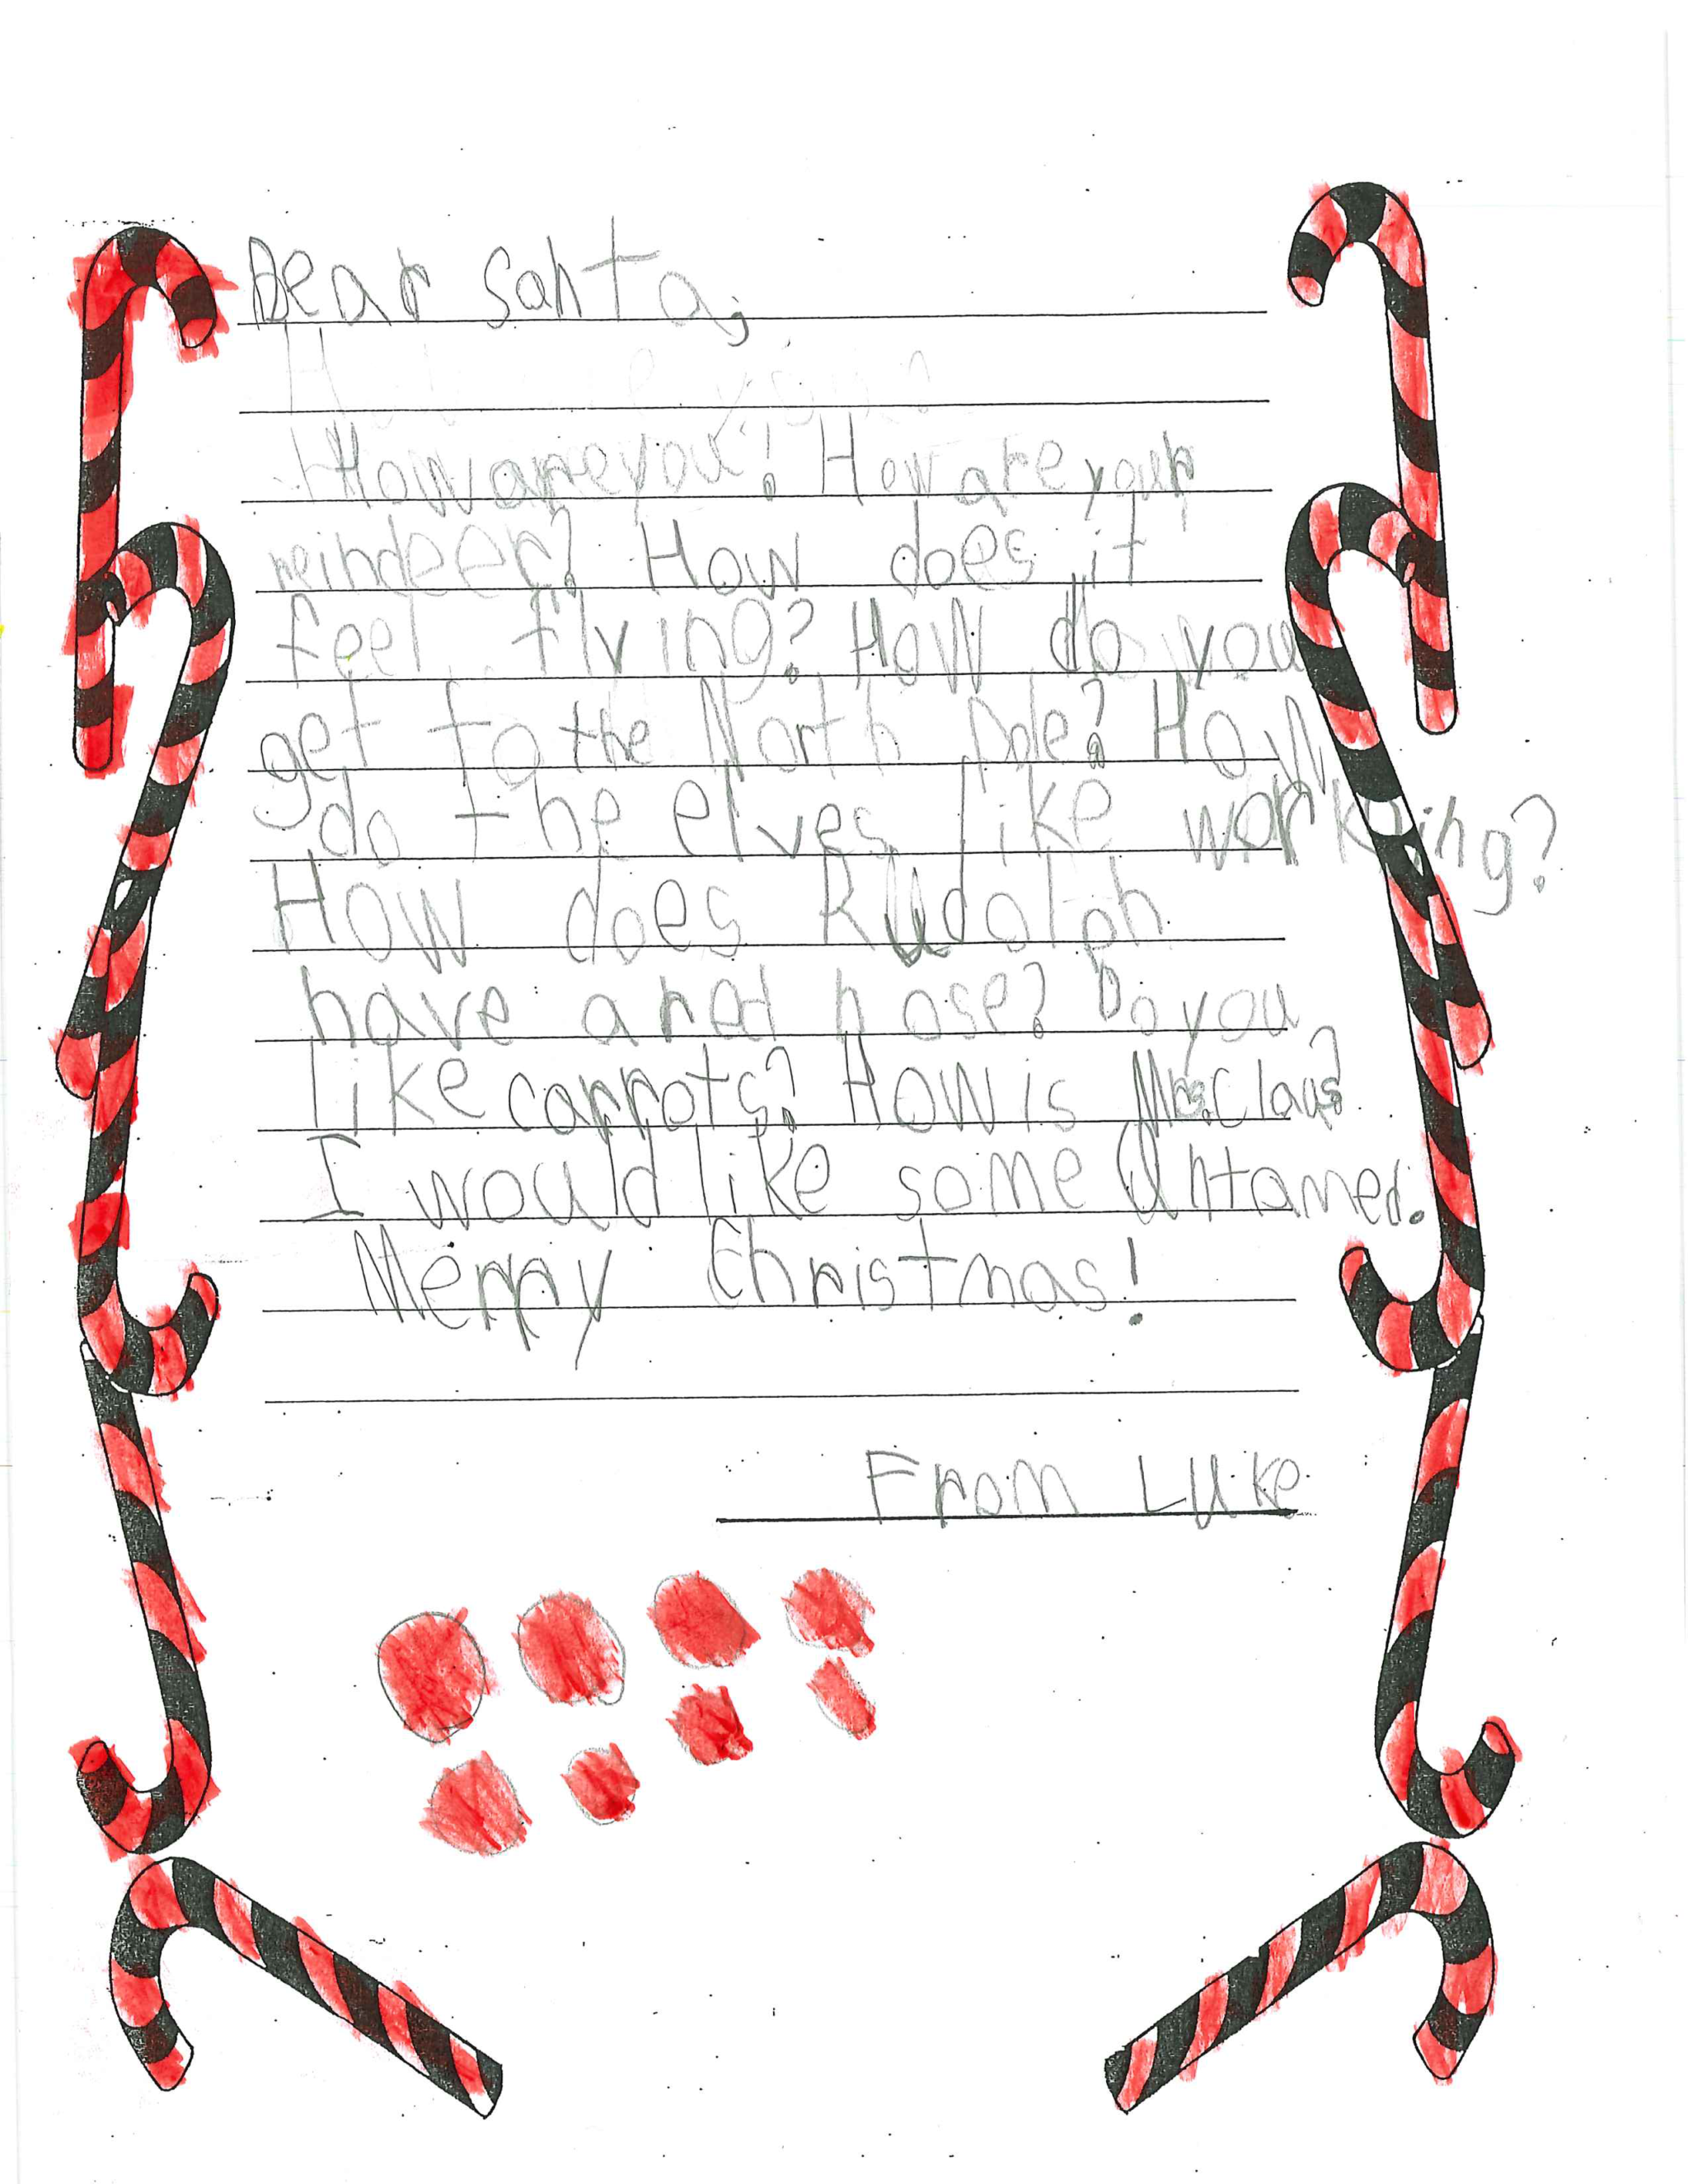 Dear Santa,
How are you?
How are you? How are your
reindeer? How does it
feel flying? How do you
get to the North Pole? How
do the elves like working?
How does Rudolph
have a red nose? Do you
like carrots? How is Mrs. Claus?
I would like some Untamed.
Merry Christmas!
From Luke